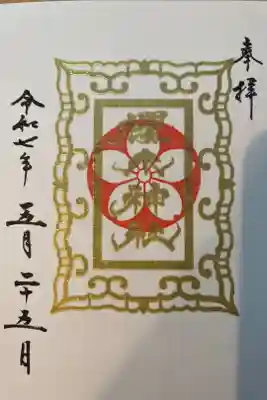 奉拝
櫻木神社
令和七年 五月 二十五日